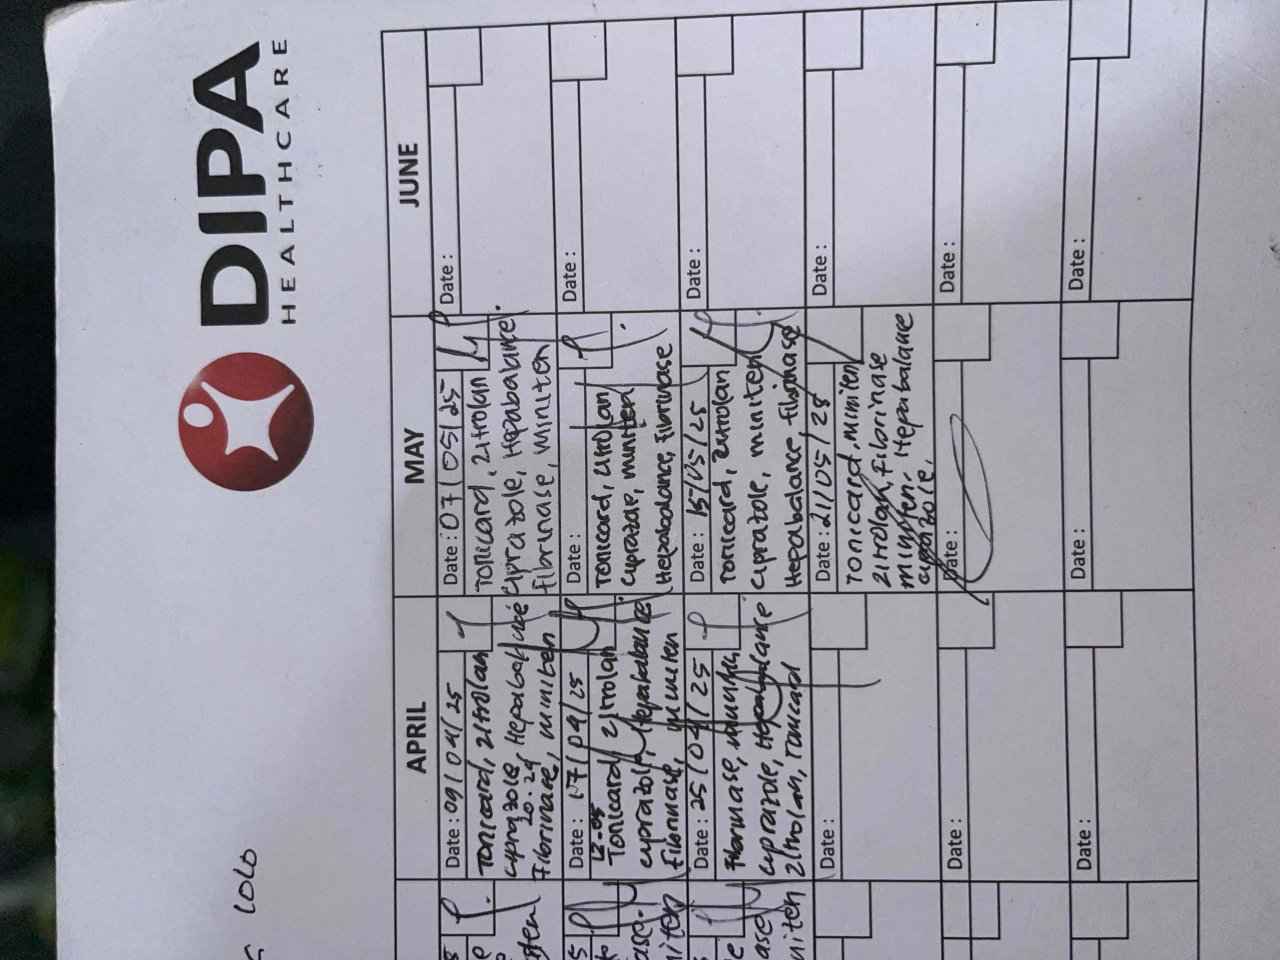 DIPA
HEALTHCARE
LOLO
APRIL
MAY
JUNE
Date : 09/04/25
Tonicard, zitrolan
cuprazole, Hepabalance
20.24
Fibrinase, miniten
Date : 17/04/25
12-05
Tonicard, zitrolan
cuprazole, Hepabalance
Fibrinase, miniten
Date : 25/04/25
Fibrinase,
cuprazole, Hepabalance
zitrolan, Tonicard
Date :
Date :
Date :
Date : 07/05/25
Tonicard, zitrolan
cuprazole, Hepabalance.
Fibrinase, miniten
Date :
Tonicard, zitrolan
cuprazole, miniten
Hepabalance, Fibrinase
Date : 15/05/25
Tonicard, zitrolan
cuprazole, miniten
Hepabalance, Fibrinase
Date : 21/05/25
Tonicard, miniten
zitrolan, Fibrinase
miniten, Hepabalance
cuprazole,
Date :
Date :
Date :
Date :
Date :
Date :
Date :
Date :
ase
niten